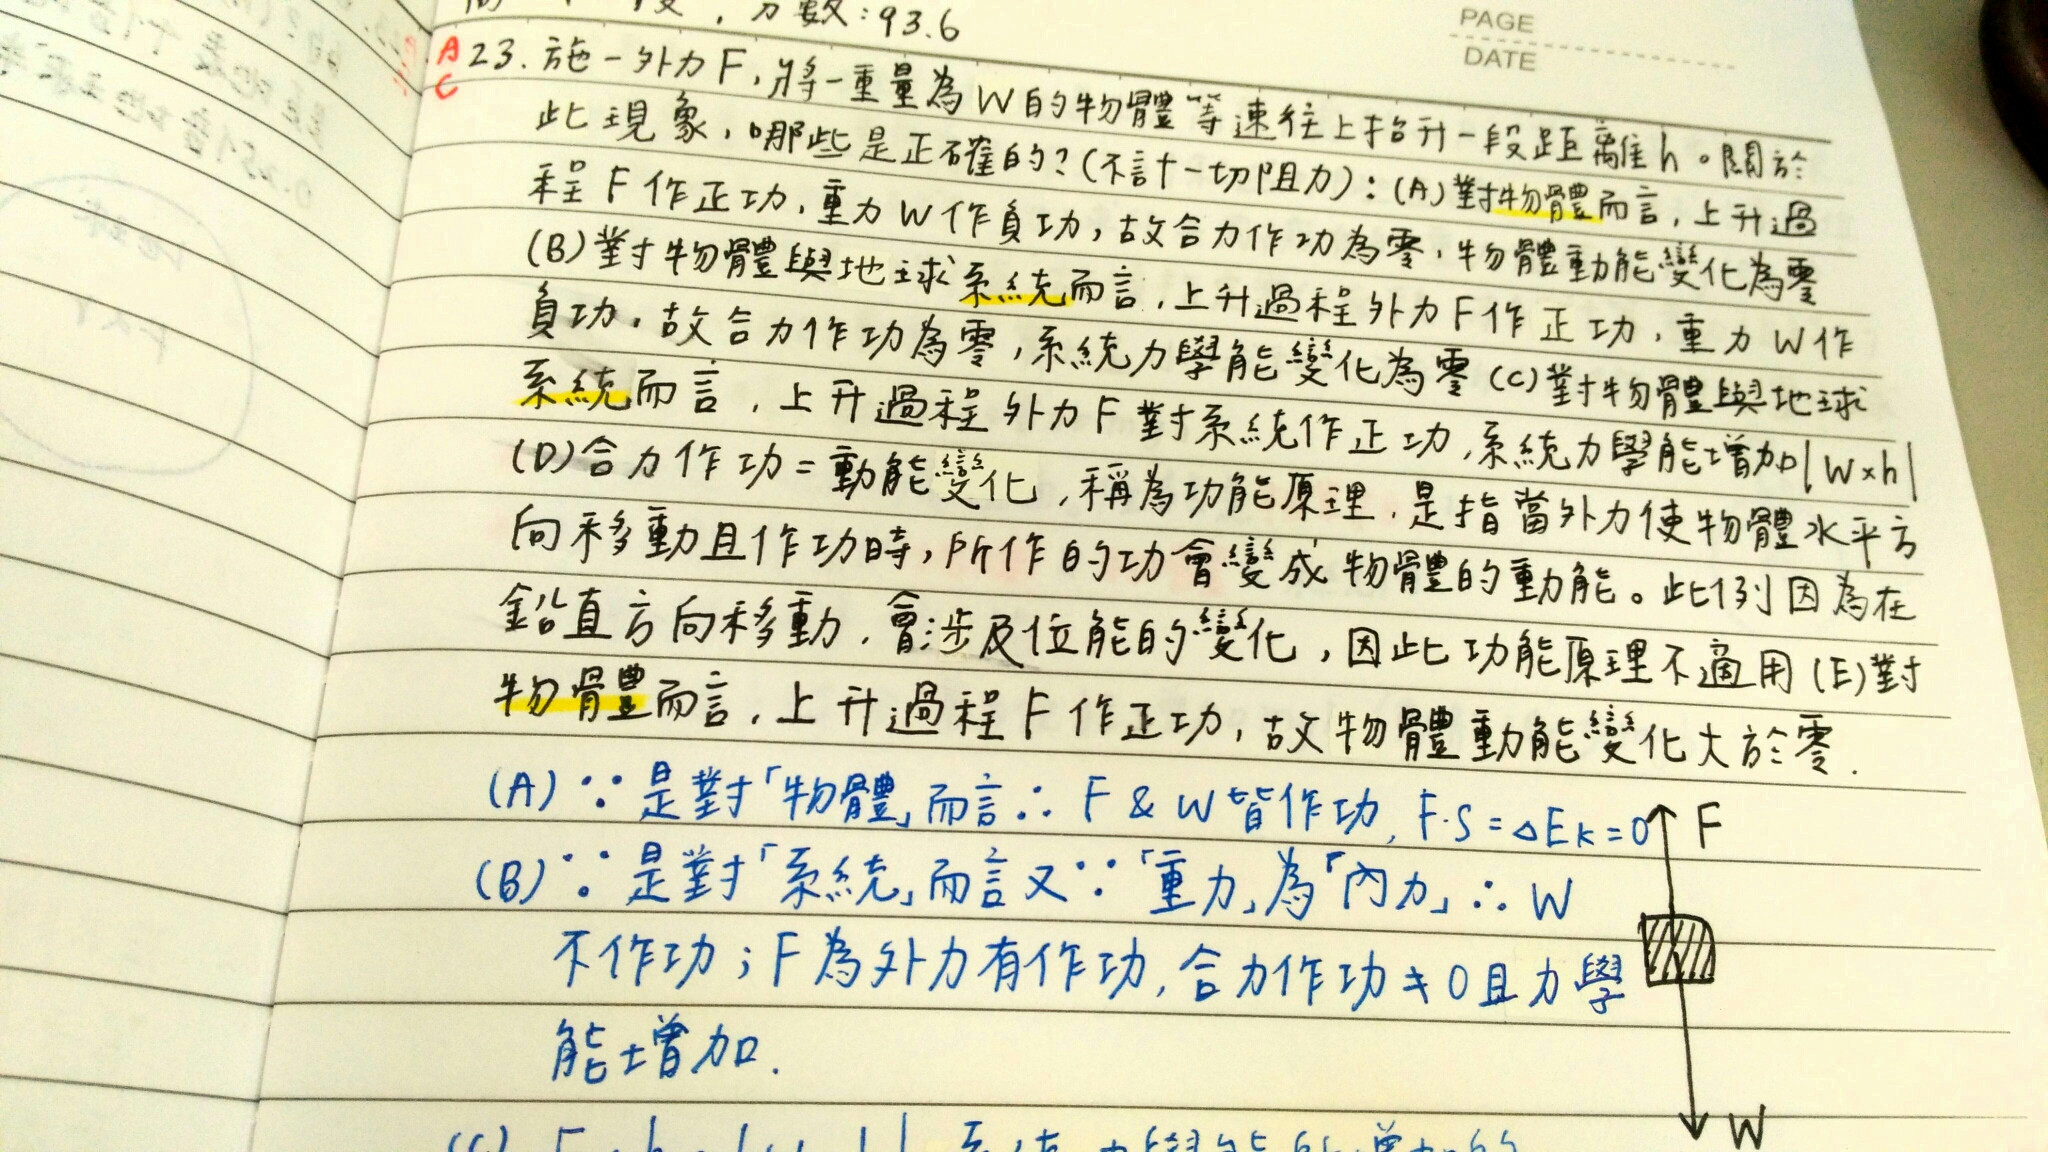 分數:93.6
PAGE
DATE
A 23. 施一外力F,將一重量為W的物體等速往上抬升一段距離h。關於
C 此現象,哪些是正確的?(不計一切阻力):(A)對物體而言,上升過
程F作正功,重力W作負功,故合力作功為零,物體動能變化為零
(B)對物體與地球系統而言,上升過程外力F作正功,重力W作
負功,故合力作功為零,系統力學能變化為零(C)對物體與地球
系統而言,上升過程外力F對系統作正功,系統力學能增加|W×h|
(D)合力作功=動能變化,稱為功能原理,是指當外力使物體水平方
向移動且作功時,所作的功會變成物體的動能。此例因為在
鉛直方向移動,會涉及位能的變化,因此功能原理不適用(E)對
物體而言,上升過程F作正功,故物體動能變化大於零.
(A)∵是對「物體」而言∴F & W皆作功, F·S=△Ek=0
F
(B)∵是對「系統」而言又∵「重力」為「內力」∴W
不作功;F為外力有作功,合力作功≠0且力學
能增加.
W